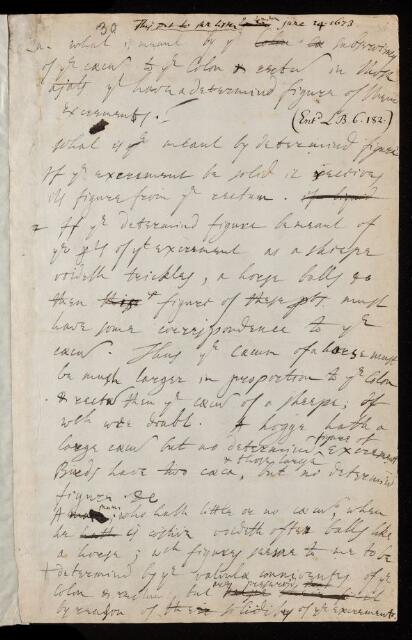 30 This put to Mr Lister June 24 1673
Qu. what is meant by ye subserviency
of ye cæcum to ye Colon & rectum in those
yt have a determind figure of their
excrements.
(Entd L.B.6.182.)
What is yt meant by determind figure
If ye excrement be solid it receives
its figure from ye rectum. if liquid
If ye determind figure be meant of
ye pts of yt excrement as a sheepe
voideth trickles, a horse balls &c
then figures of these pts must
have some correspondence to ye
cæcum. Thus ye cæcum of a horse must
be much larger in proportion to ye Colon
& rectum then ye cæcum of a sheepe; of
wch wee doubt. A hogge hath a
large cæcum but no determind figure of Excrement
Birds have two cæca, & those large, but no determind
figure &c
A man, who hath little or no cæcum, when
he is costive voideth often balls like
a horse; wch figures seeme to me to be
determind by ye valvula conniventes of ye
Colon & rectum, but
by reason of the solidity of ye excrements